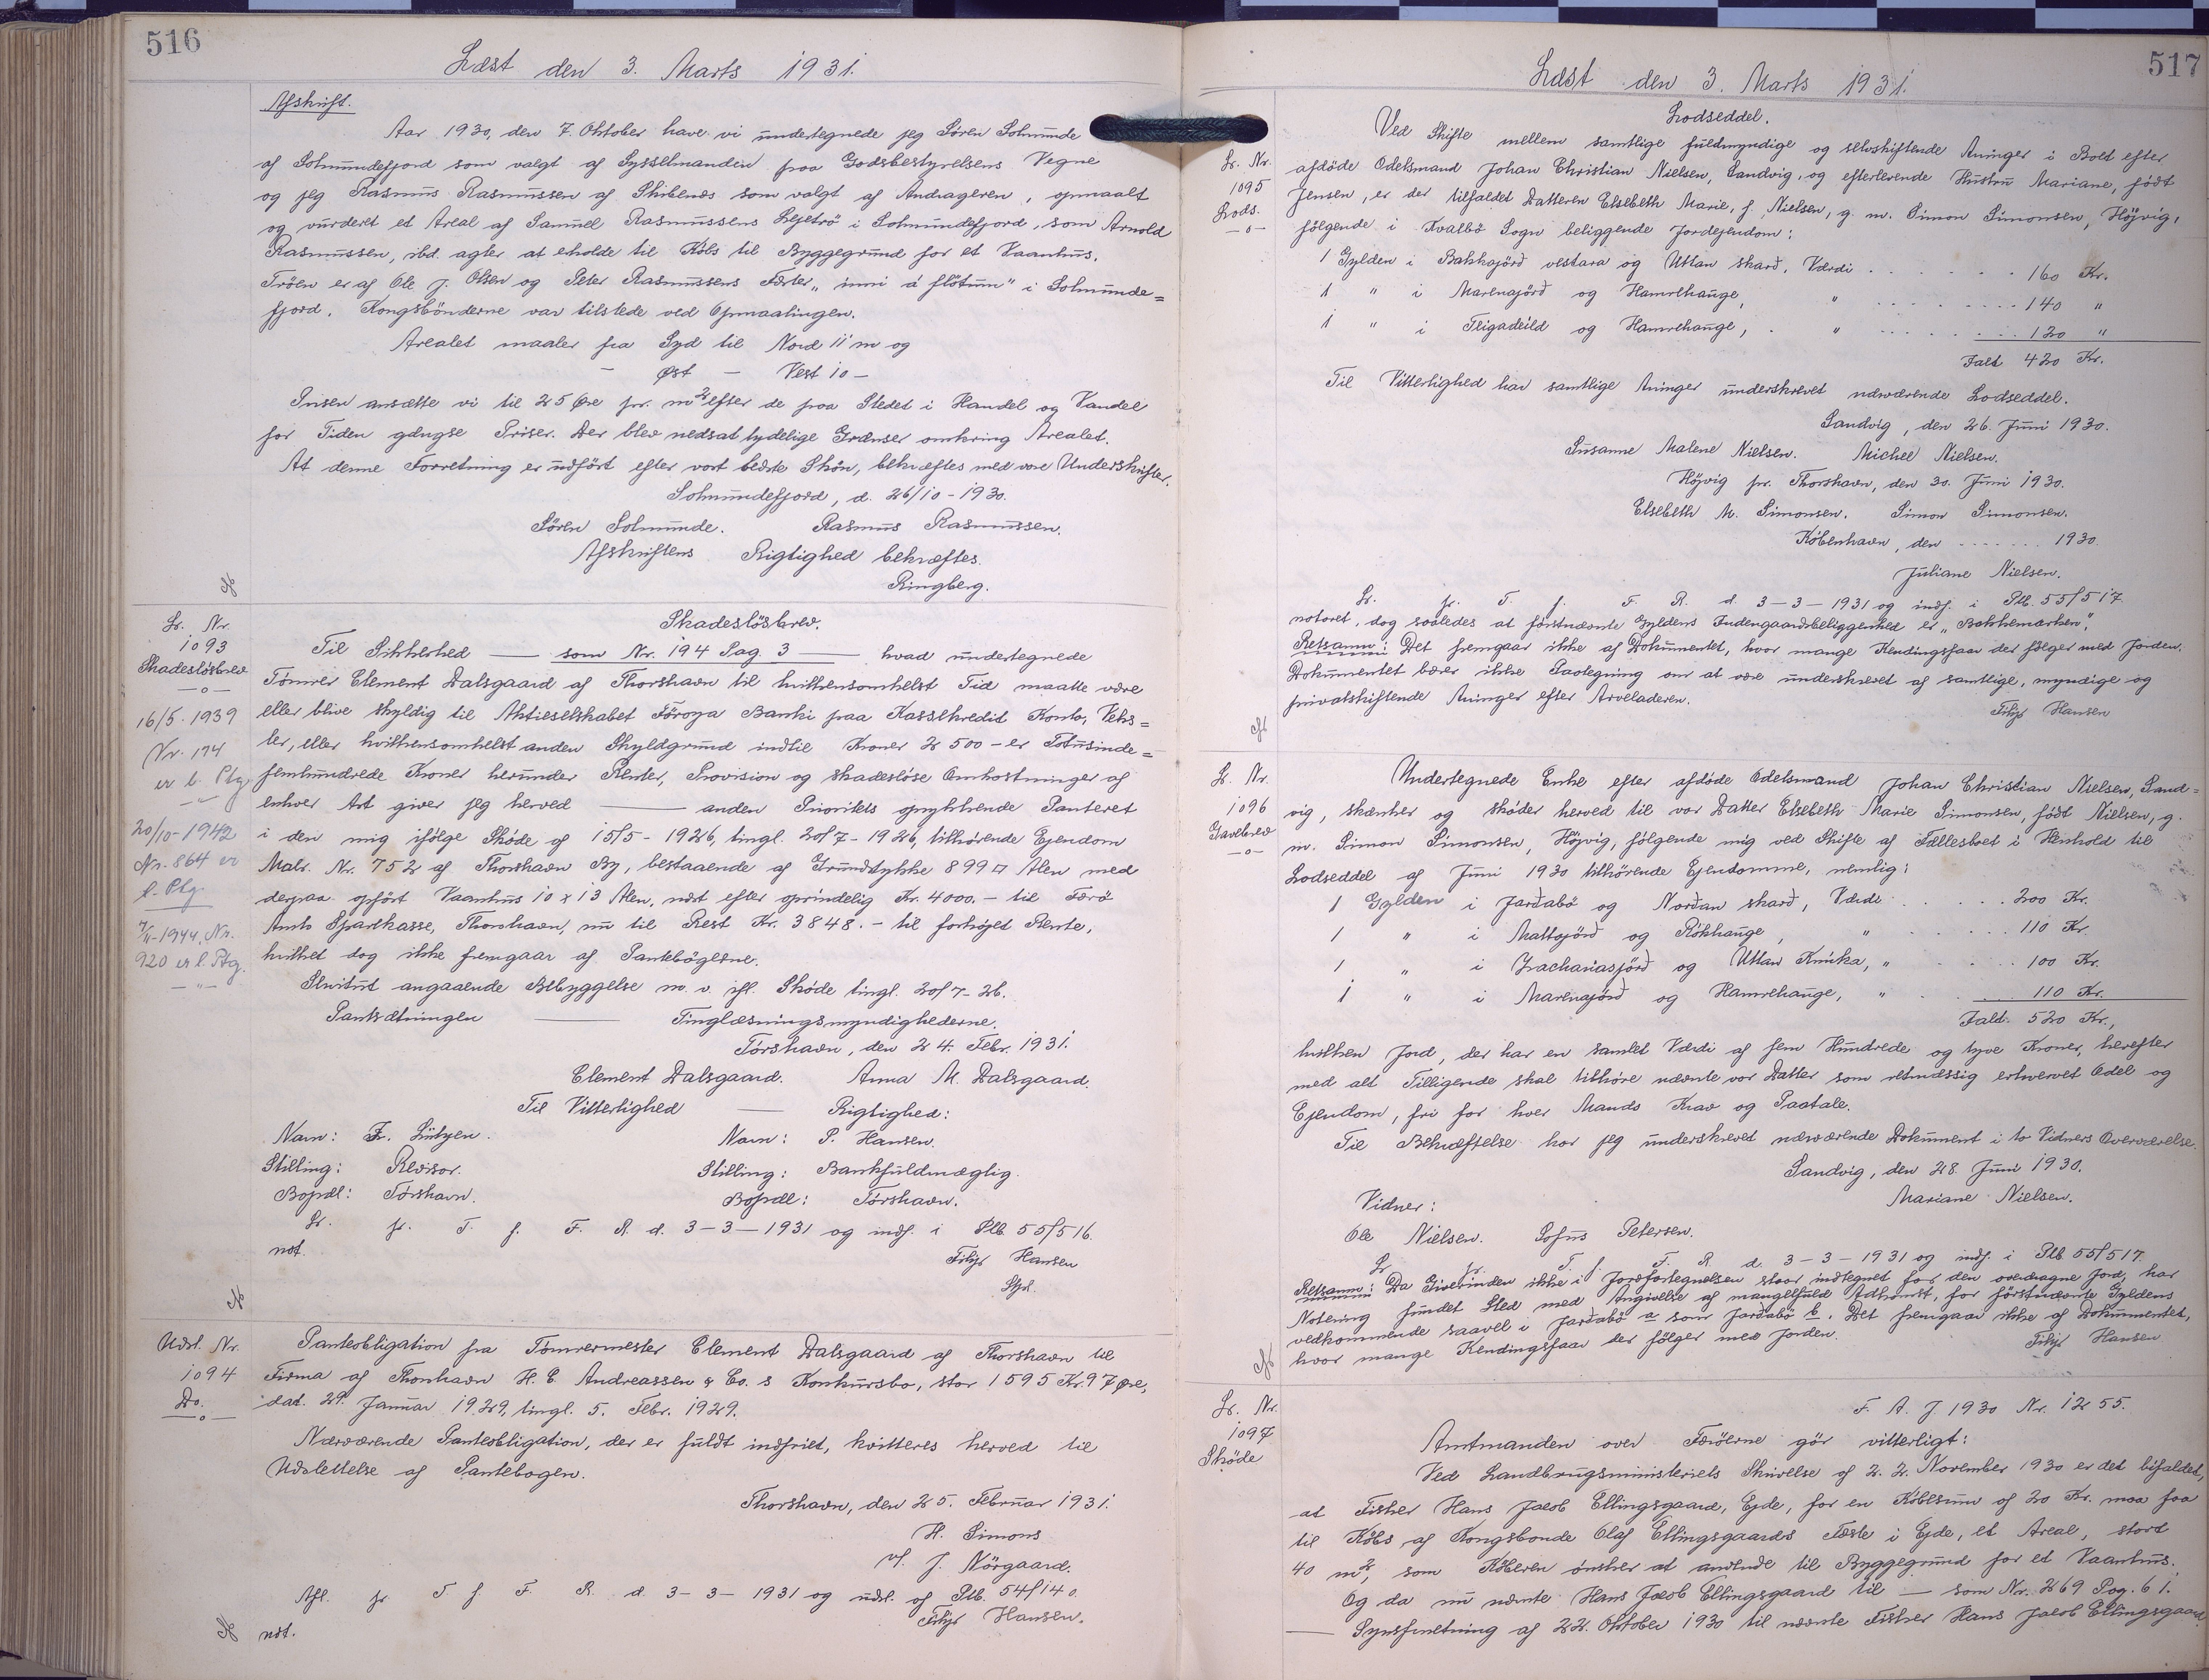 516
Læst den 3. Marts 1931.
Afskrift.
Aar 1930, den 7. Oktober have vi undertegnede jeg Sören Solmunde
af Solmundefjord som valgt af Sysselmanden paa Godsbestyrelsens Vegne
og jeg Rasmus Rasmussen af Skibenæs som valgt af Andrageren, opmaalt
og vurderet et Areal af Samuel Rasmussens Lejetrö i Solmundefjord, som Arnold
Rasmussen, ibd. agter at eholde til Köbs til Byggegrund for et Vaanhus.
Tröen er af Ole J. Olsen og Peter Rasmussens Fæster „inni á flötum" i Solmunde=
fjord. Kongsbönderne var tilstede ved Opmaalingen.
Arealet maaler fra Syd til Nord 11 m og
– Øst – Vest 10 –
Prisen ansætte vi til 25 Øre pr. m² efter de paa Stedet i Handel og Vandel
for Tiden gængse Priser. Der blev nedsat tydelige Grænser omkring Arealet.
At denne Forretning er udfört efter vort bedste Skön, bekræftes med vore Underskrifter.
Solmundefjord, d. 26/10 - 1930.
Sören Solmunde. Rasmus Rasmussen.
Afskriftens Rigtighed bekræftes.
Ringberg.
Lr. Nr.
1093
Skadeslösbrev
—o—
16/5. 1939
Nr. 174
er l. Ptg.
20/10-1942
Nr. 864 er
l. Ptg
7/11-1944, Nr.
920 er l. Ptg.
Skadeslösbrev.
Til Sikkerhed —— som Nr. 194 Pag. 3 —— hvad undertegnede
Tömrer Clement Dalsgaard af Thorshavn til hvilkensomhelst Tid maatte være
eller blive skyldig til Aktieselskabet Föroya Banki paa Kassekredit Konto, Veks=
ler, eller hvilkensomhelst anden Skyldgrund indtil Kroner 2500 – er Totusinde=
femhundrede Kroner herunder Renter, Provision og skadeslöse Omkostninger af
enhver Art giver jeg herved —— anden Prioritets oprykkende Panteret
i den mig ifölge Sköde af 15/5 - 1926, tingl. 20/7 - 1926, tilhörende Ejendom
Matr. Nr. 752 af Thorshavn By, bestaaende af Grundstykke 899 □ Alen med
derpaa opfört Vaanhus 10 x 13 Alen, næst efter oprindelig Kr. 4000.- til Færö
Amts Sparekasse, Thorshavn, nu til Rest Kr. 3848.- til forhöjet Rente,
hvilket dog ikke fremgaar af Pantebögerne.
Servitut angaaende Bebyggelse m. v. ifl. Sköde tingl. 20/7 - 26.
Pantsætningen —— Tinglæsningsmyndighederne.
Tórshavn, den 24. Febr. 1931.
Clement Dalsgaard. Anna M. Dalsgaard.
Til Vitterlighed —— Rigtighed:
Navn: Fr. Lützen. Navn: P. Hansen.
Stilling: Revisor. Stilling: Bankfuldmægtig.
Bopæl: Tórshavn. Bopæl: Tórshavn.
Lr. fr. T. f. F. R. d. 3-3-1931 og indf. i Ptb. 55/516.
not.
Filip Hansen
Udsl. Nr.
1094
Do.
—o—
Panteobligation fra Tömrermester Clement Dalsgaard af Thorshavn til
Firma af Thorshavn H. C. Andreassen & Co. s Konkursbo, stor 1595 Kr. 97 Øre,
dat. 29. Januar 1929, tingl. 5. Febr. 1929.
Nærværende Panteobligation, der er fuldt indfriet, kvitteres herved til
Udslettelse af Pantebogen.
Thorshavn, den 25. Februar 1931.
H. Simons
v/ J. Nörgaard.
Afl. fr T f F. R. d. 3-3-1931 og udsl. af Ptb. 54/140.
not. Filip Hansen.
517
Læst den 3. Marts 1931.
Lodseddel.
Lr. Nr.
1095
Lods.
—o—
Ved Skifte mellem samtlige fuldmyndige og selvskiftende Arvinger i Boet efter
afdöde Odelsmand Johan Christian Nielsen, Sandvig, og efterlevende Hustru Mariane, født
Jensen, er der tilfaldet Datteren Elsebeth Marie, f. Nielsen, g. m. Simon Simonsen, Höjvig,
fölgende i Kvalbö Sogn beliggende Jordejendom:
1 Gylden i Bakkajörð vestara og Uttan skarð. Værdi . . . . . 160 Kr.
1 " i Marenajörð og Hamrehauge, " . . . . . 140 "
1 " i Teigadeild og Hamrehauge, " . . . . . 120 "
Ialt 420 Kr.
Til Vitterlighed har samtlige Arvinger underskrevet nærværende Lodseddel.
Sandvig, den 26. Juni 1930.
Susanne Malene Nielsen. Michel Nielsen.
Höjvig pr. Thorshavn, den 30. Juni 1930.
Elsebeth M. Simonsen. Simon Simonsen.
København, den . . . . . . 1930.
Juliane Nielsen.
Lr. fr. T. f. F. R. d. 3-3-1931 og indf. i Ptb. 55/517
noteret, dog saaledes at förstnævnte Gyldens Indengaardsbeliggenhed er „Bakkemarken".
Retsanm: Det fremgaar ikke af Dokumentet, hvor mange Kendingsfaar der fölger med Jorden.
Dokumentet bærer ikke Paategning om at være underskrevet af samtlige, myndige og
privatskiftende Arvinger efter Arveladeren.
Filip Hansen
Lr. Nr.
1096
Gavebrev
—o—
Undertegnede Enke efter afdöde Odelsmand Johan Christian Nielsen, Sand=
vig, skænker og sköder herved til vor Datter Elsebeth Marie Simonsen, født Nielsen, g.
m. Simon Simonsen, Höjvig, fölgende mig ved Skifte af Fællesboet i Henhold til
Lodseddel af Juni 1930 tilhörende Ejendomme, nemlig:
1 Gylden i Jarðabö og Norðan skarð, Værdi . . . . . 200 Kr.
1 " i Mattajörð og Rókhauge, " . . . . 110 Kr.
1 " i Zachariasjörð og Uttan Knúka, " . . . . 100 Kr.
1 " i Marenajörð og Hamrehauge, " . . . . 110 Kr.
Ialt: 520 Kr.,
hvilken Jord, der har en samlet Værdi af fem Hundrede og tyve Kroner, herefter
med alt Tilligende skal tilhöre nævnte vor Datter som retmæssig erhvervet Odel og
Ejendom, fri for hver Mands Krav og Paatale.
Til Bekræftelse har jeg underskrevet nærværende Dokument i to Vidners Overværelse.
Sandvig, den 28. Juni 1930.
Mariane Nielsen.
Vidner:
Ole Nielsen. Sofus Petersen.
Lr fr. T. f. F. R d. 3-3-1931 og indf. i Ptb 55/517.
Retsanm: Da Giverinden ikke i Jordfortegnelsen staar indtegnet for den overdragne Jord, har
Notering fundet Sted med Angivelse af mangelfuld Adkomst, for förstnævnte Gyldens
vedkommende saavel i Jarðabö a som Jarðabö b. Det fremgaar ikke af Dokumentet,
hvor mange Kendingsfaar der fölger med Jorden.
Filip Hansen
Lr. Nr.
1097
Sköde
F. A. J 1930 Nr. 1255.
Amtmanden over Færöerne gör vitterligt:
Ved Landbrugsministeriets Skrivelse af 22. November 1930 er det bifaldet,
at Fisker Hans Jacob Ellingsgaard, Ejde, for en Köbesum af 20 Kr. maa faa
til Købs af Kongsbonde Olaf Ellingsgaards Fæste i Ejde, et Areal, stort
40 m², som Köberen ønsker at anvende til Byggegrund for et Vaanhus.
Og da nu nævnte Hans Jacob Ellingsgaard til — som Nr. 269 Pag. 61.
—— Synsforretning af 22. Oktober 1930 til nævnte Fisker Hans Jacob Ellingsgaard